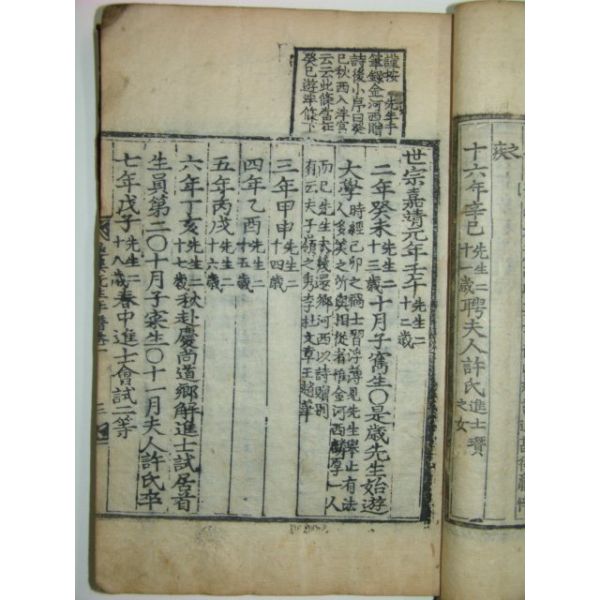 十六年辛巳先生二十一歲聘夫人許氏進士瓚之女
謹按先生手
筆錄金河西贈
詩後小序曰癸
巳秋西入泮宮
云云此條當在
癸巳遊泮條下
世宗嘉靖元年壬午先生二十二歲
二年癸未先生二十三歲十月子寯生〇是歲先生始遊
大學時經己卯之禍士習浮薄見先生擧止有法
人多笑之所與相從者惟金河西麟厚一人
而已先生未幾還鄉河西以詩贈別
有云夫子嶺之秀李杜文章王趙筆
三年甲申先生二十四歲
四年乙酉先生二十五歲
五年丙戌先生二十六歲
六年丁亥先生二十七歲秋赴慶尚道鄉解進士試居首
生員第二〇十月子寀生〇十一月夫人許氏卒
七年戊子先生二十八歲春中進士會試二等